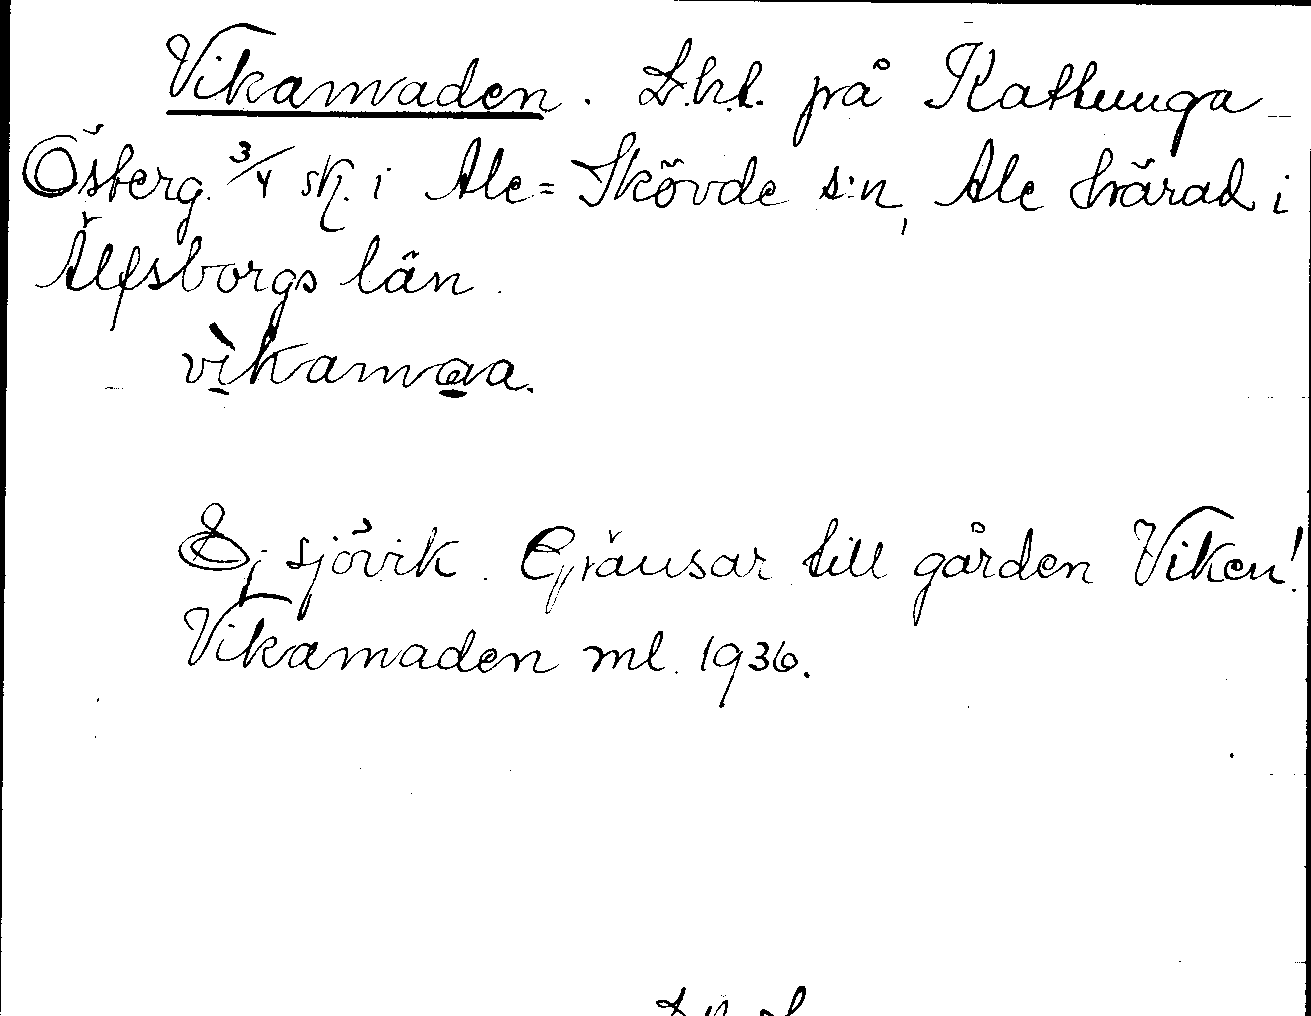 Vikamaden. D.h.l. på Kattunga
Ösberg 3/4 sk. i Ale=Skövde s:n, Ale härad i
Älfsborgs län.
vìkamaa.
Ej sjövik. Gränsar till gården Viken!
Vikamaden ml. 1936.